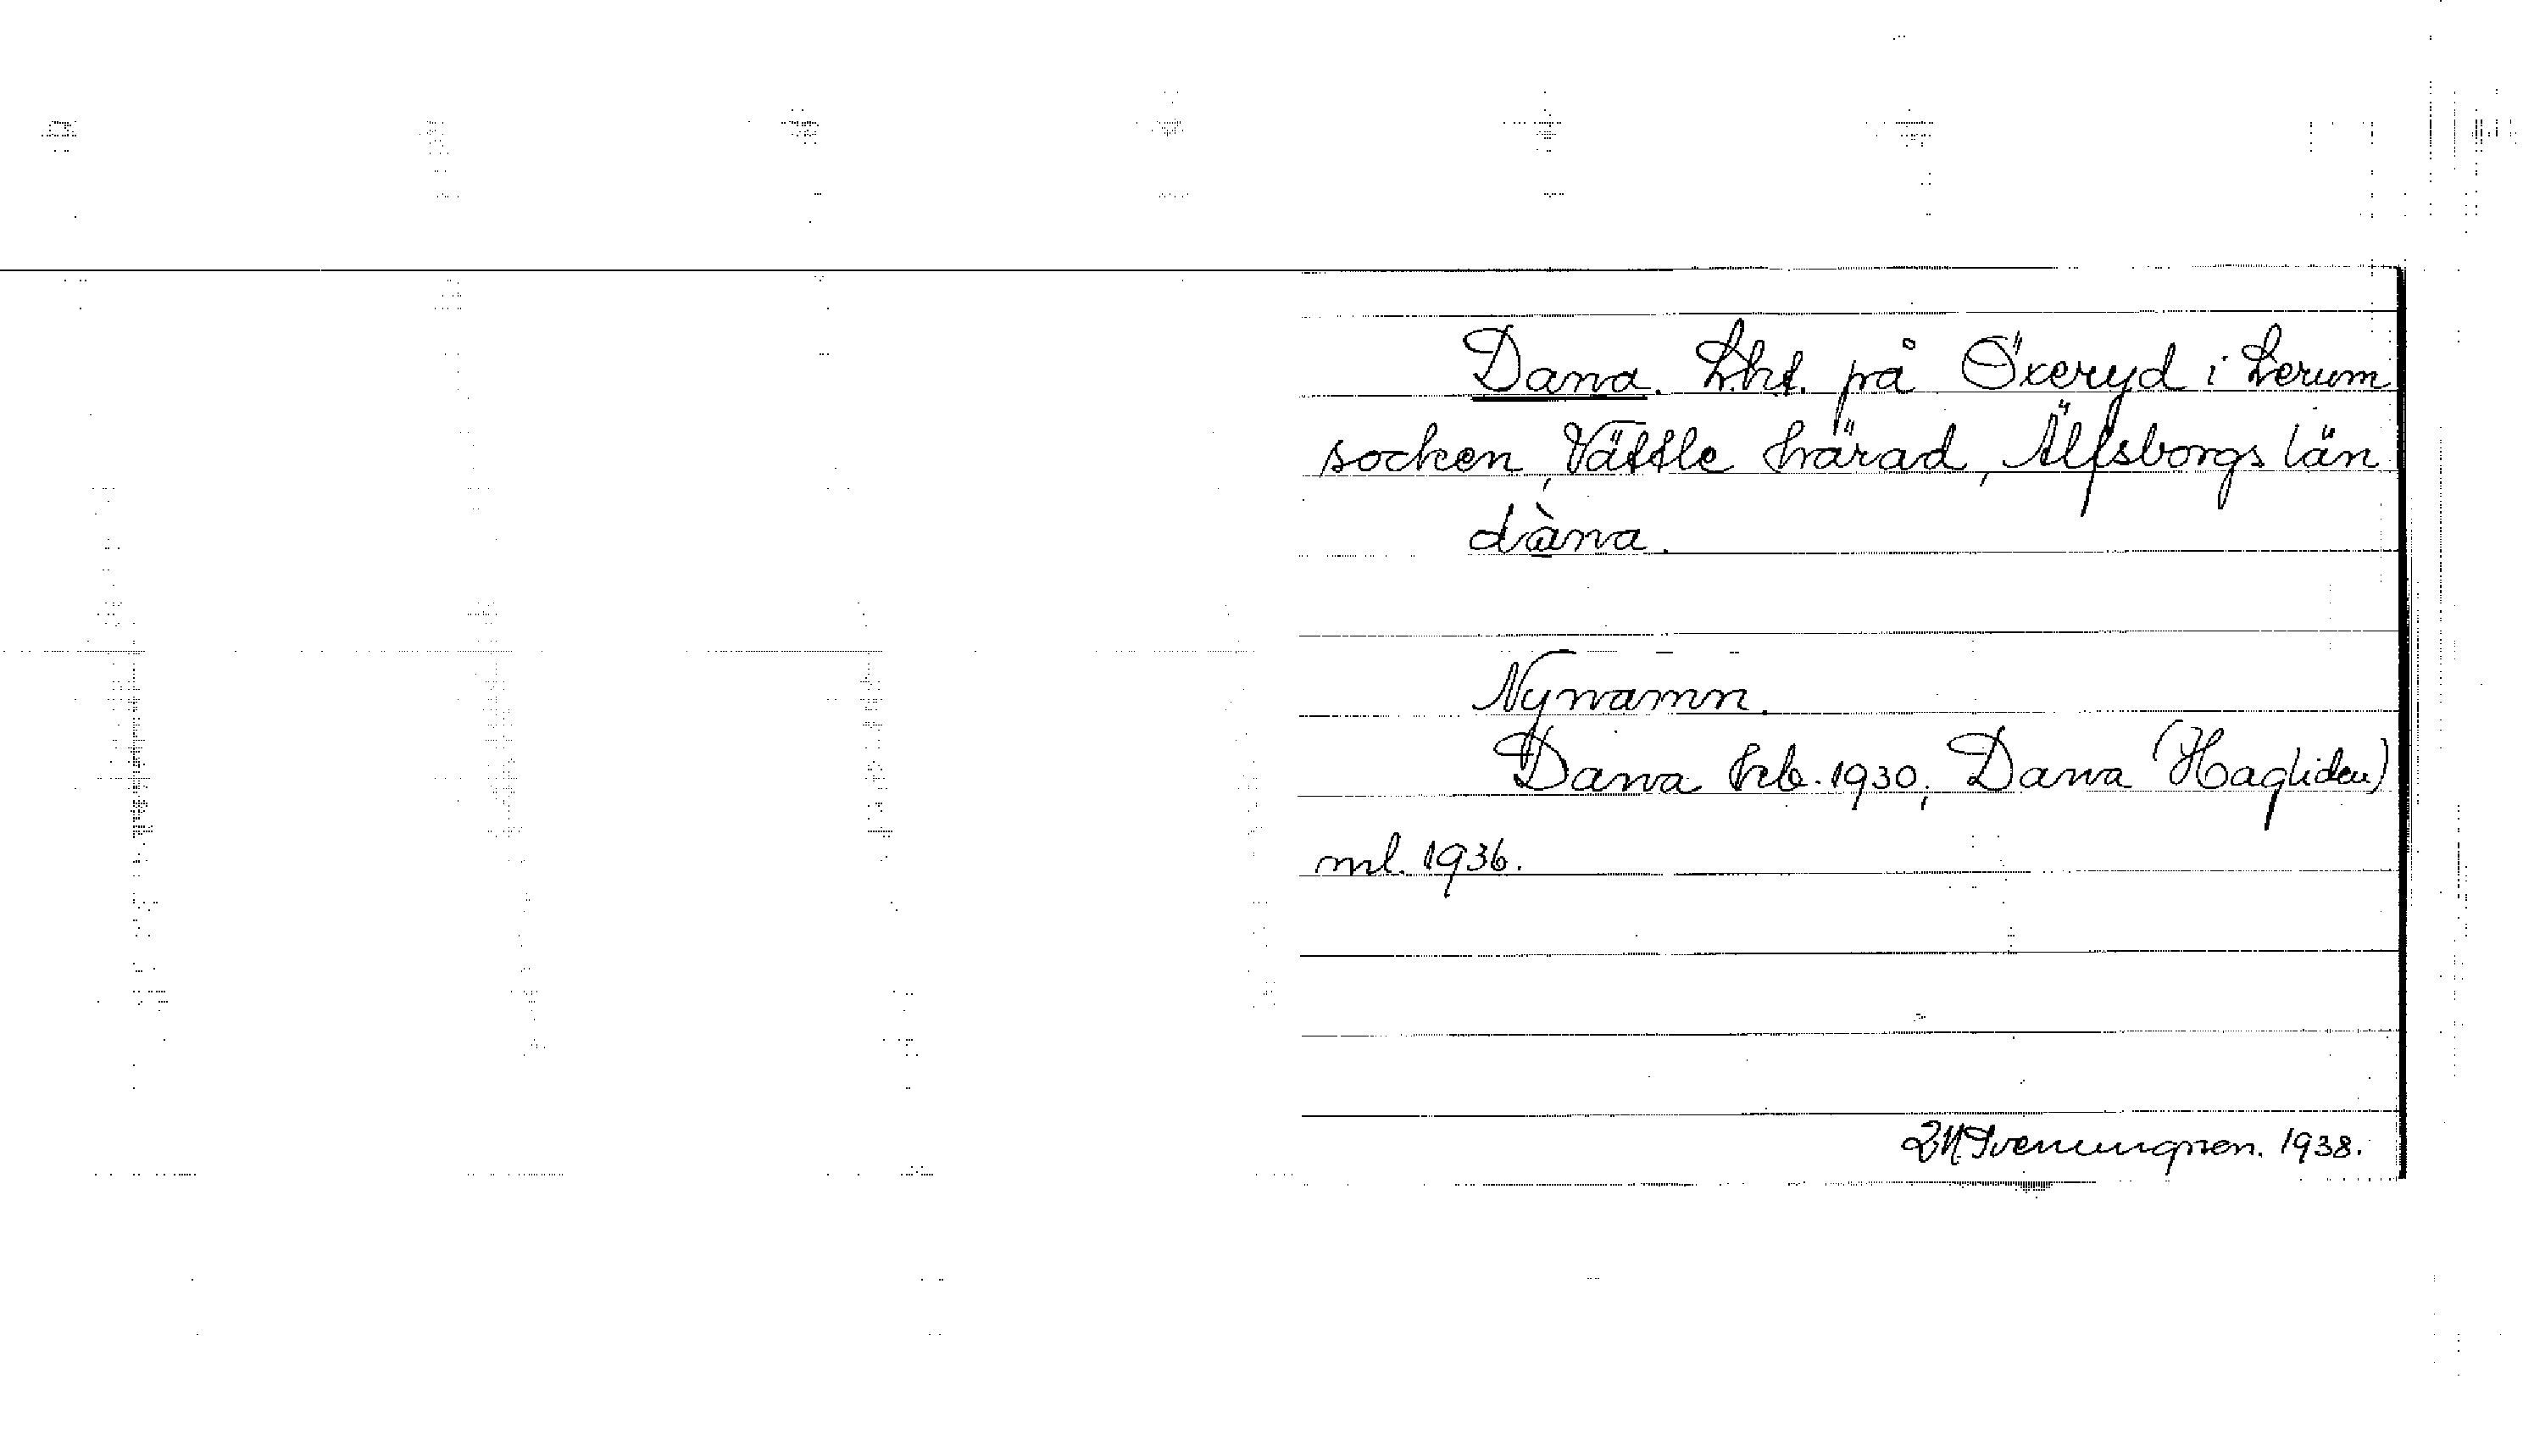 Dana. Lht. på Öxeryd i Lerum
socken, Vättle härad, Älfsborgs län
dàna.
Nynamn.
Dana hrb. 1930; Dana (Hagliden)
ml. 1936.
Svenungsson. 1938.